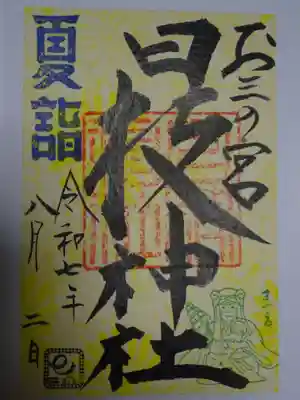 お三の宮
日枝神社
夏詣
令和七年
八月二日